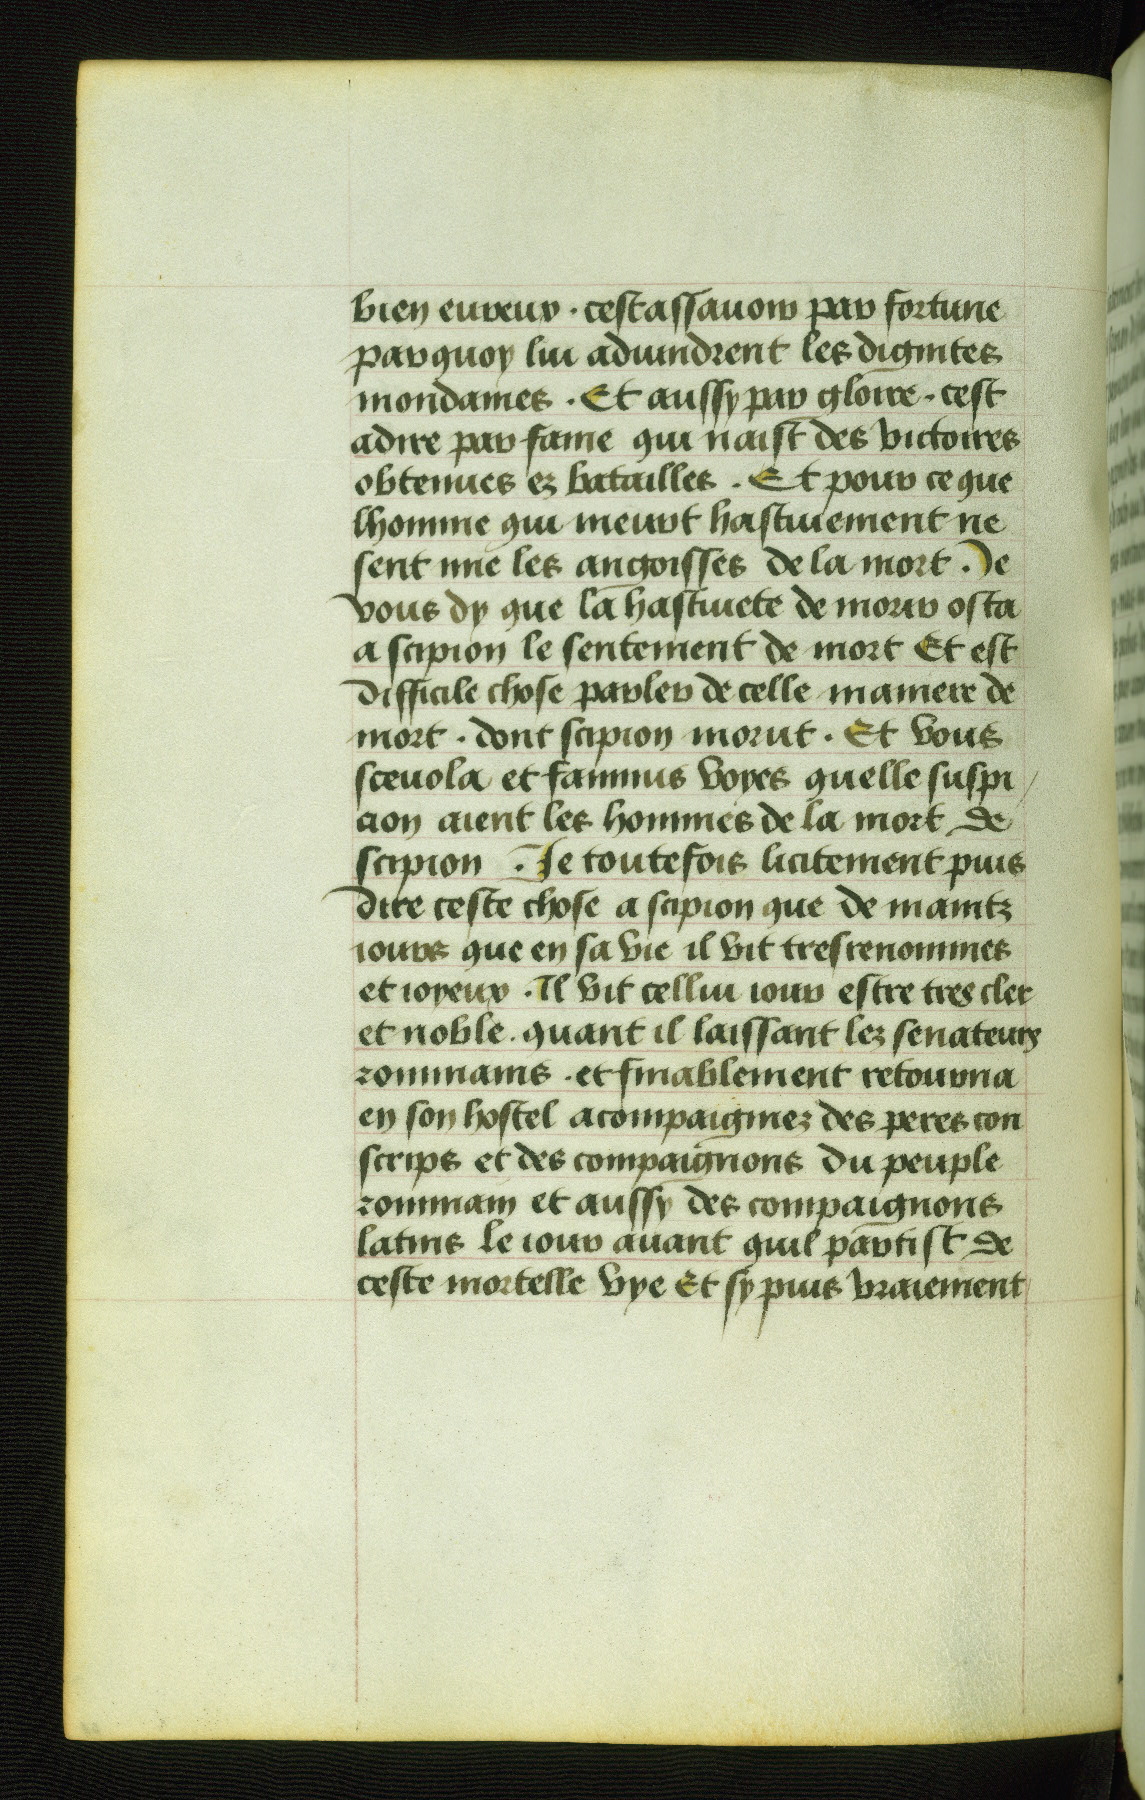 bien eureux · cestassauoir par fortune
parquoy lui aduindrent les dignites
mondaines · Et aussy par gloire · cest
adire par fame qui naist des victoires
obtenues ez batailles · Et pour ce que
lhomme qui meurt hastiuement ne
sent mie les angoisses de la mort · Je
vous dy que la hastiuete de morir osta
a scipion le sentement de mort Et est
difficile chose parler de celle maniere de
mort · dont scipion morut · Et vous
sceuola et fannius voyes quelle suspi
cion aient les hommes de la mort de
scipion · Je toutefois licitement puis
dire ceste chose a scipion que de maintz
iours que en sa vie il vit tresrenommes
et ioyeux · Il vit cellui iour estre tres cler
et noble · quant il laissant lez senateurs
rommains · et finablement retourna
en son hostel acompaigniez des peres con
scrips et des compaignons du peuple
rommain et aussy des compaignons
latins le iour auant quil partist de
ceste mortelle vye Et sy puis vraiement